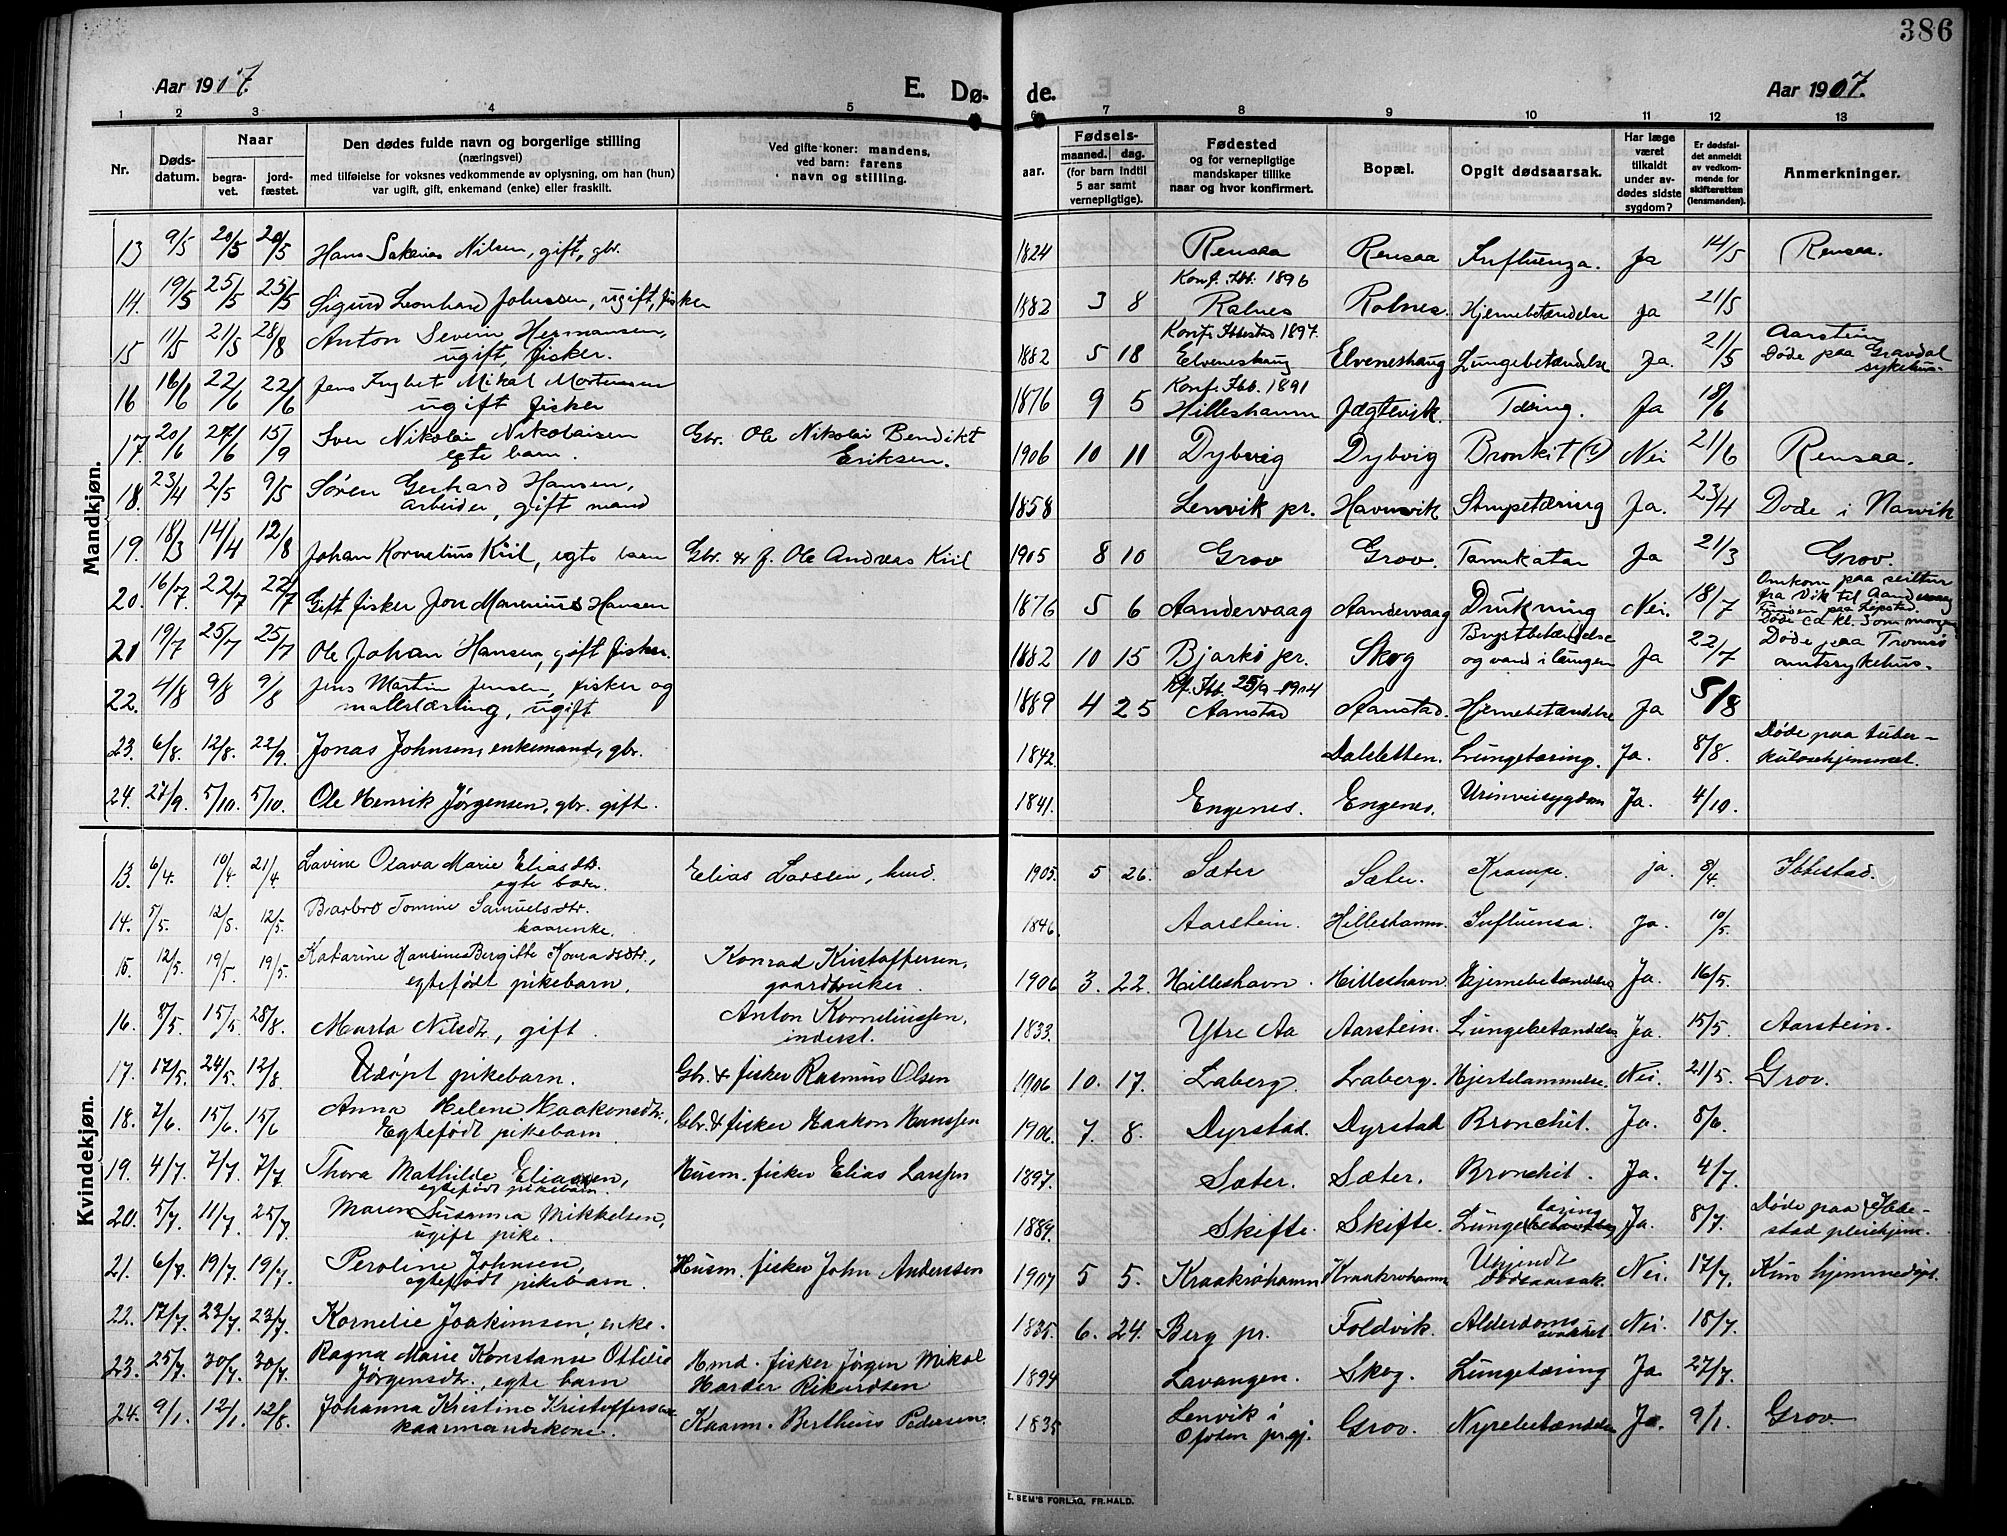 386
Aar 1907. E. Dø- de. Aar 1907.
1 2 3 4 5 6 7 8 9 10 11 12 13
Nr. Døds-datum. Naar begra-vet. jord-fæstet. Den dødes fulde navn og borgerlige stilling (næringsvei) med tilføielse for voksnes vedkommende av oplysning, om han (hun) var ugift, gift, enkemand (enke) eller fraskilt. Ved gifte koner: mandens, ved barn: farens navn og stilling. aar. Fødsels- maaned. dag. (for barn indtil 5 aar samt vernepligtige). Fødested og for vernepligtige mandskaper tillike naar og hvor konfirmert. Bopæl. Opgit dødsaarsak. Har læge været tilkaldt under av-dødes sidste sygdom? Er dødsfal-det anmeldt av vedkom-mende for skifteretten (lensmanden). Anmerkninger.
Mandkjøn.
13 9/5 20/5 20/5 Hans Sakerias Nilsen, gift, gbr. 1824 Rensaa Rensaa Influenza. Ja 14/5 Rensaa.
14. 19/5 25/5 25/5 Sigurd Leonhard Johnssen, ugift, fisker 1882 3 8 Konf. Ibb. 1896 Rolnes Rolnes. Hjernebetændelse Ja 21/5
15 11/5 21/5 28/8 Anton Severin Hermansen, ugift, fisker. 1882 5 18 Konf. Ibbestad 1897. Elveneshaug Elveneshaug Lungebetændelse Ja. 21/5 Aarstein Døde paa Gravdal sykehus.
16 16/6 22/6 22/6 Jens Ingbet Mikal Mortensen ugift fisker 1876 9 5 Konf. Ibb. 1891 Hilleshamn Jægtevik. Tæring. Ja 18/6
17. 20/6 24/6 15/9 Iver Nikolai Nikolaisen egte barn. Gbr. Ole Nikolai Bendikt Eriksen. 1906 10 11 Dybvig Dybvig Bronkit (?) Nei 21/6 Rensaa.
18. 23/4 2/5 9/5 Søren Gerhard Hansen, arbeider, gift mand 1858 Lenvik pr. Havnvik Strupetæring Ja. 23/4 Døde i Narvik
19. 18/3 14/4 12/8 Johan Kornelius Kiil, egte barn Gbr. & f. Ole Andreas Kiil 1905 8 10 Grov Grov. Tarmkatar Ja 21/3 Grov.
20. 16/7. 22/7 22/7 Gift fisker Jon Marenius Hansen 1876 5 6 Aandervaag Aandervaag Drukning Nei. 18/7 Omkom paa seiltur fra Vik til Aandervaag Døde ca kl. 5 om morgen
21 19/7 25/7 25/7 Ole Johan Hansen, gift fisker. 1882 10 15 Bjarkø pr. Skog Brystbetændelse og vand i lungen Ja 22/7 Døde paa Tromsø amtssykehus.
22. 4/8 9/8 9/8 Jens Martin Jensen, fisker og malerlærling, ugift 1889 4 25 Kf. Ibb. 25/9-1904 Aanstad Aanstad. Hjernebetændelse Ja 5/8
23. 6/8. 12/8. 22/9. Jonas Johnsen, enkemand, gbr. 1842. Dalsletten. Lungetæring. Ja. 8/8. Døde paa tuber-kulosehjemmet.
24. 27/9. 5/10. 5/10. Ole Henrik Jørgensen, gbr. gift. 1841. Engenes. Engenes. Urinveisygdom Ja. 4/10.
Kvindekjøn.
13. 6/4. 10/4. 21/4. Lavine Olava Marie Eliasdtr. egte barn. Elias Larsen, husmd. 1905. 5 26. Sæter Sæter. Krampe. ja. 8/4. Ibbestad.
14. 5/5. 12/5. 12/5. Barbro Tomine Samuelsdtr. kaarenke. 1846. Aarstein. Hilleshamn. Influensa. Ja. 10/5.
15. 12/5. 19/5. 19/5. Katarine Hansine Bergitte Konradsdtr., egtefødt pikebarn. Konrad Kristoffersen, gaardbruker. 1906 3. 22. Hilleshavn. Hilleshavn Hjernebetændelse Ja. 16/5.
16. 8/5. 15/5. 28/8. Marta Nilsdtr, gift. Anton Korneliussen, inderst. 1833. Ytre Aa Aarstein. Lungebetændelse Ja. 15/5. Aarstein.
17. 17/5. 24/5. 12/8. Udøpt pikebarn. Gbr. & fisker Rasmus Olsen 1906 10. 17. Laberg. Laberg. Hjertelammelse. Nei. 21/5. Grov.
18. 7/6. 15/6. 15/6 Anna Helene Haakonsdtr., Egtefødt pikebarn Gbr. & fisker Haakon Hanssen 1906. 7. 8. Dyrstad. Dyrstad Bronchit. Ja. 8/6.
19. 4/7. 7/7. 7/7. Thora Mathilde Eliassen, egtefødt pikebarn. Husm. fisker Elias Larssen 1897. Sæter. Sæter. Bronchit. Ja. 4/7.
20. 5/7. 11/7. 25/7 Maren Susanna Mikkelsen, ugift pike. 1889. Skifte. Skifte. Lungetæring Ja. 8/7. Døde paa Ibbe-stad pleiehjem.
21. 6/7. 19/7. 19/7. Peroline Johnsen, egtefødt pikebarn. Husm. fisker John Anderssen 1907 5 5. Kraakrøhamn Kraakrøhamn Ukjendt dødsaarsak. Nei. 17/7. Kun hjemmedøpt.
22. 17/7. 23/7. 23/7. Kornelie Joakimsen, enke. 1835. 6. 24. Berg pr. Foldvik. Alderdoms-svakhet. Nei. 18/7.
23. 25/7. 30/7. 30/7. Ragna Marie Konstanse Ottilie Jørgensdtr., egte barn Hmd. fisker Jørgen Mikal Harder Rikardsen 1894 Lavangen. Skog. Lungetæring Ja. 27/7.
24. 9/1. 12/1. 12/8. Johanna Kristine Kristoffersen kaarmandskone. Kaarm. Berthius Pedersen. 1835 Lenvik i Ofoten prgj. Grov. Nyrebetændelse Ja. 9/1. Grov.
E. SEM'S FORLAG, FR.HALD.